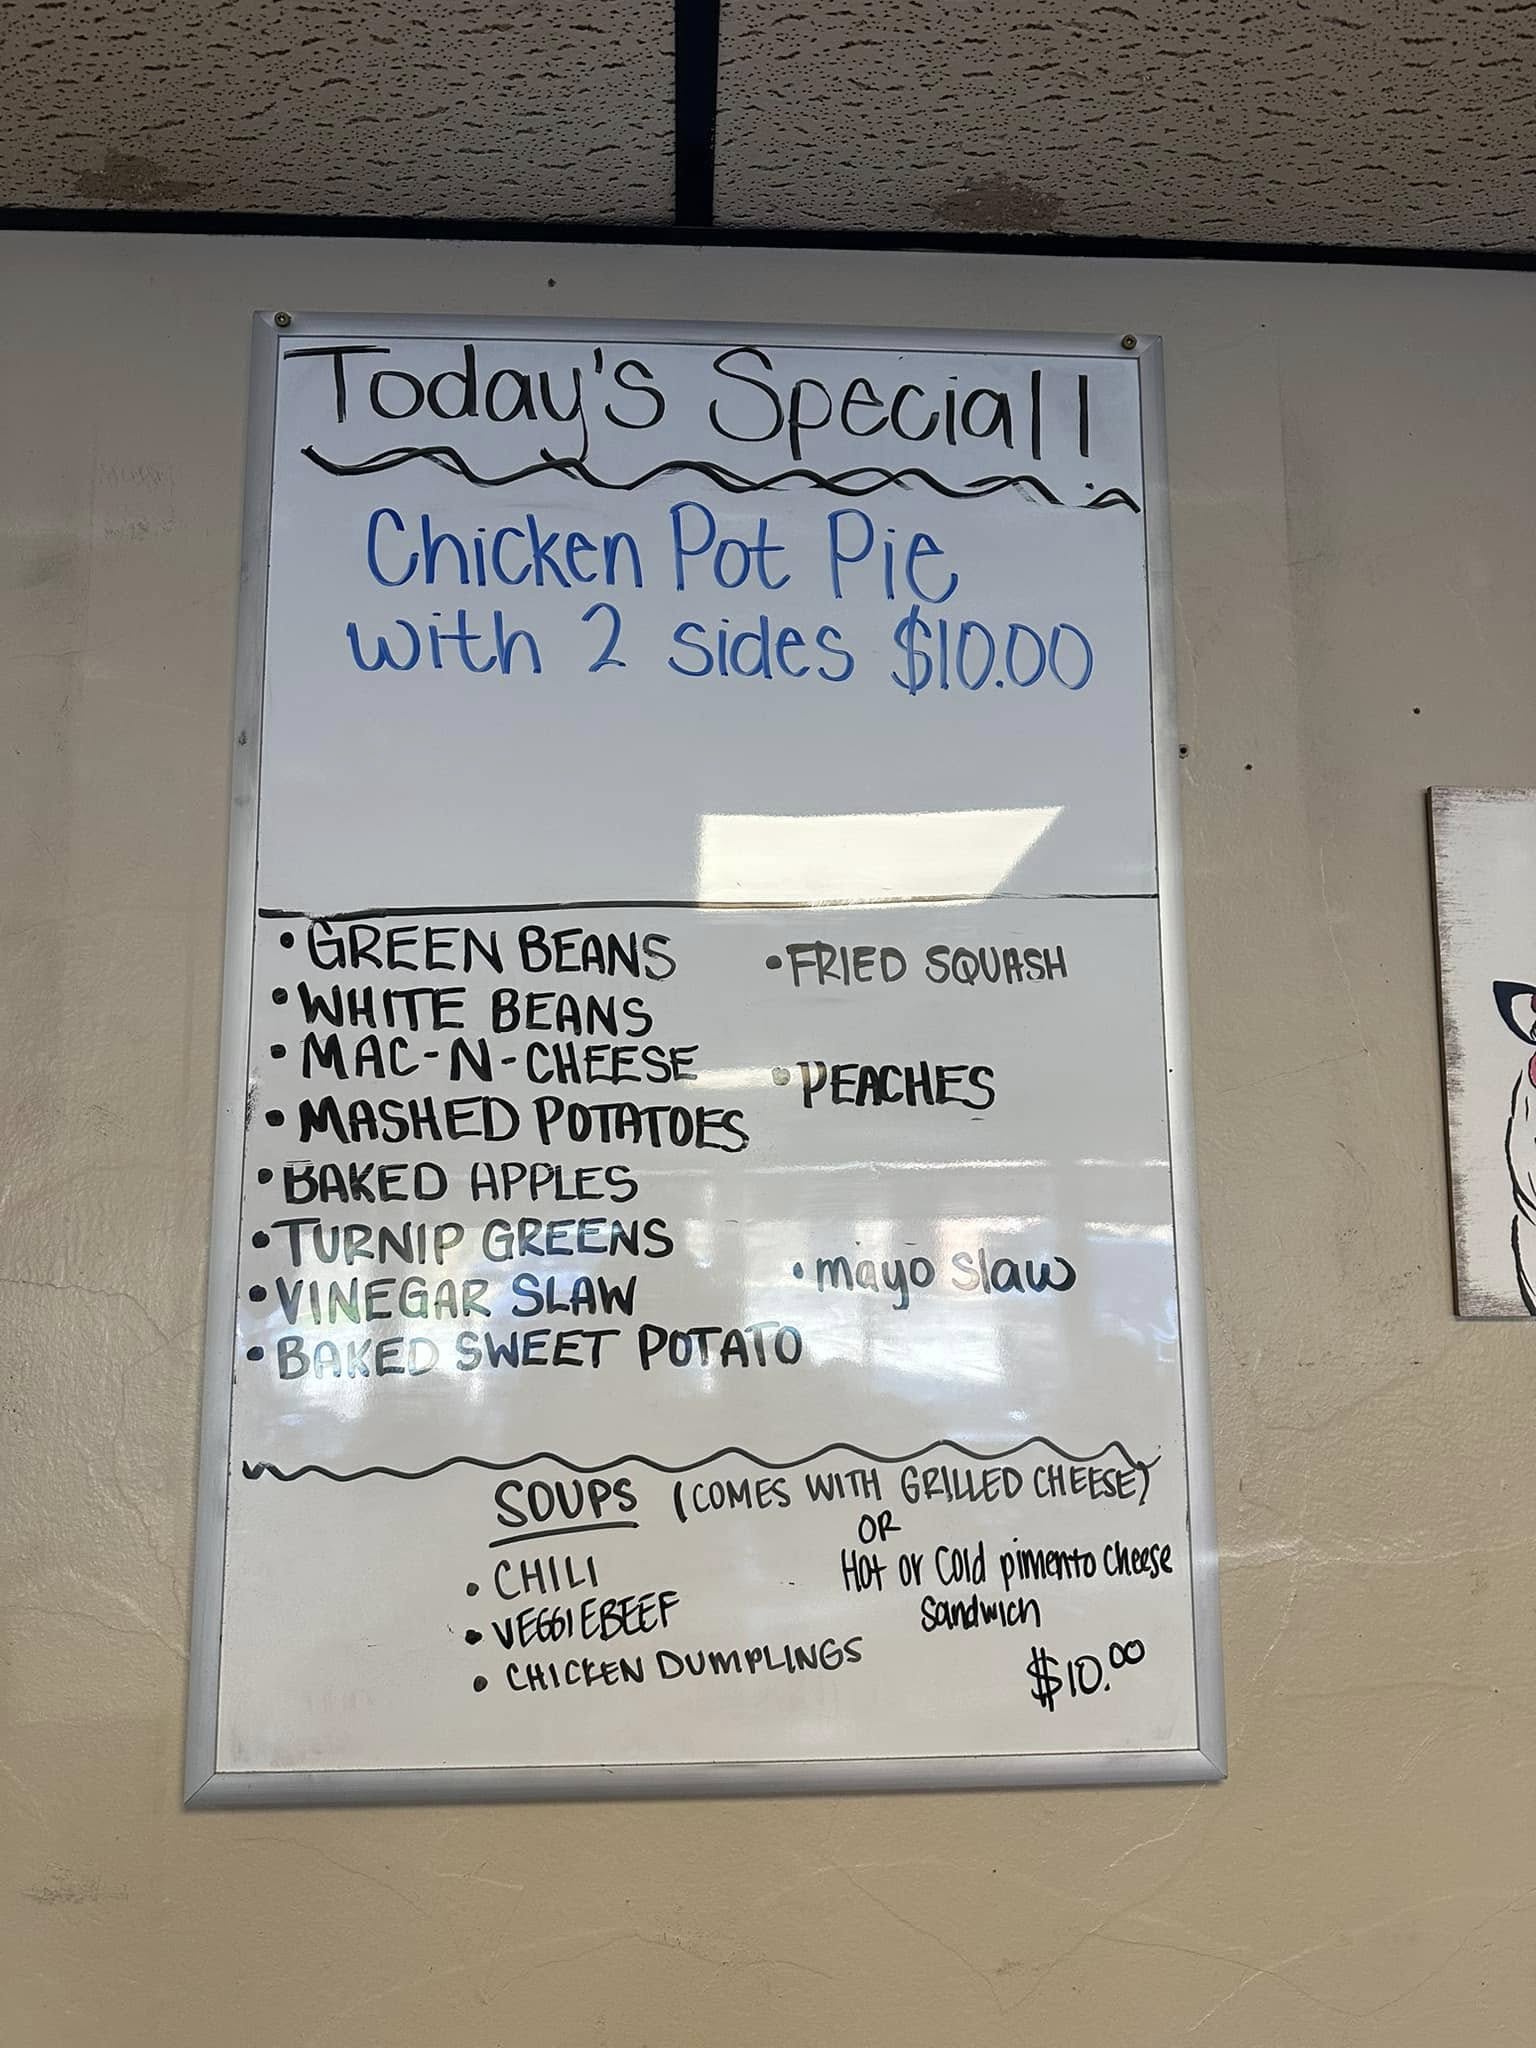 Today's Special!
Chicken Pot Pie
with 2 sides $10.00
• GREEN BEANS
• WHITE BEANS
• MAC-N-CHEESE
• MASHED POTATOES
• BAKED APPLES
• TURNIP GREENS
• VINEGAR SLAW
• BAKED SWEET POTATO
• FRIED SQUASH
• PEACHES
• mayo slaw
SOUPS (COMES WITH GRILLED CHEESE)
OR
Hot or Cold pimento cheese
Sandwich
$10.00
• CHILI
• VEGGIEBEEF
• CHICKEN DUMPLINGS